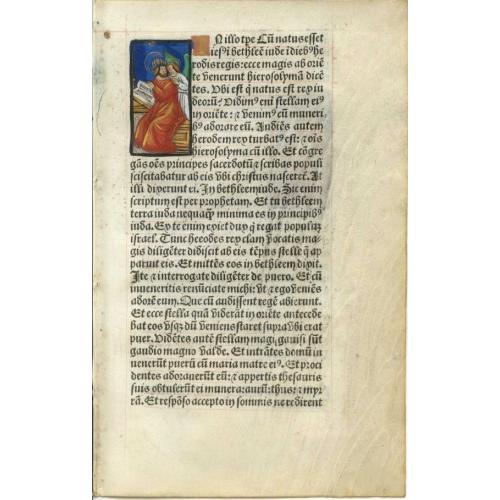 N illo tp̃e Cũ natus esset
iesꝰ i bethleẽ iude ĩ diebꝰ he
rodis regis: ecce magis ab oriẽ
te venerunt hierosolymã dicẽ
tes. Vbi est q̃ natus est rex iu
deorũ? Vidimꝰ eni stellam eiꝰ
in oriẽte: ⁊ venimꝰ cũ muneri
bꝰ adorare eũ. Audiẽs autem
herodem rex turbatꝰ est: ⁊ oĩs
hierosolyma cũ illo. Et cõgre
gãs oẽs principes sacerdotũ ⁊ scribas populi
sciscitabatur ab eis vbi christus nasceret̃. At
illi dixerunt ei. In bethleem iude. Sic enim
scriptum est per prophetam. Et tu bethleem
terra iuda nequaq̃ minima es in principibꝰ
iuda. Ex te enim exiet dux q̃ regat populũ
israel. Tunc herodes rex clam ꝓcatis ma-
gis diligẽter didicit ab eis tẽpus stelle q̃ ap
paruit eis. Et mittẽs eos in bethleem dixit.
Ite ⁊ interrogate diligẽter de puero. Et cũ
inueneritis renũciate michi: vt ⁊ ego veniẽs
adorẽ eum. Que cũ audissent regẽ abierunt.
Et ecce stella quã viderãt in oriẽte antecede
bat eos vsq̃ dũ veniens staret supra vbi erat
puer. Vidẽtes autẽ stellam magi, gauisi sũt
gaudio magno valde. Et intrãtes domũ in
venerũt puerũ cũ maria matre eiꝰ. Et proci
dentes adorauerũt eũ: ⁊ appertis thesauris
suis obtulerũt ei munera: aurũ: thus: ⁊ myr
rã. Et respõso accepto in somnis ne redirent